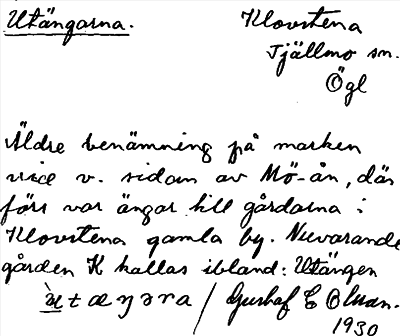 Utängarna.
Klovstena
Tjällmo sn.
Ögl
Äldre benämning på marken
vice v. sidan av Mö-ån, där
förr var ängar till gårdarna i
Klovstena gamla by. Nuvarande
gården K kallas ibland: Utängen
ù t æ ŋ ə r a / Gustaf E Olsson.
1930